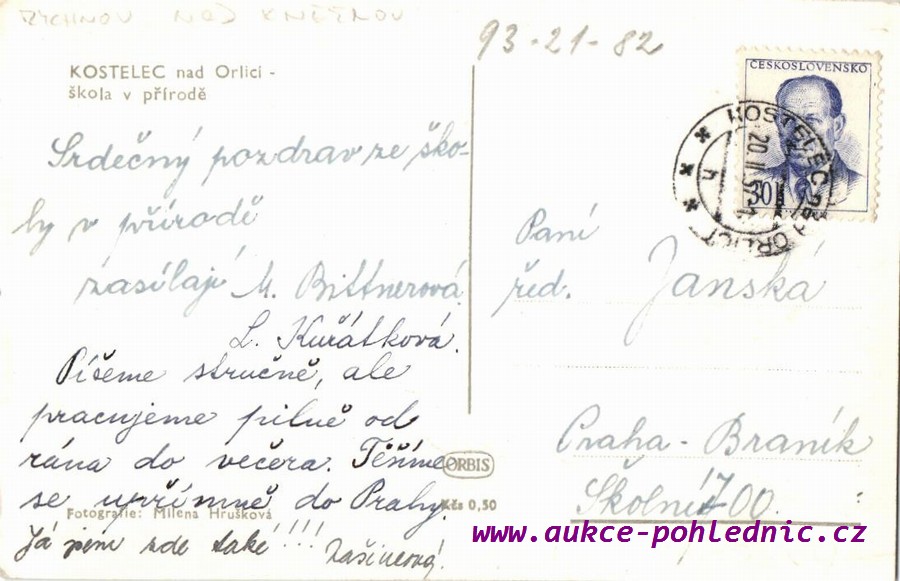 RYCHNOV NAD KNĚŽNOU
93-21-82
KOSTELEC nad Orlicí -
škola v přírodě
Srdečný pozdrav ze ško-
ly v přírodě
zasílají M. Bittnerová
L. Kuřátková.
Píšeme stručně, ale
pracujeme pilně od
rána do večera. Těšíme
se upřímně do Prahy.
Já jsem zde také!!! Rašinerová.
Fotografie: Milena Hrušková
ORBIS
Kčs 0,50
ČESKOSLOVENSKO
30
KOSTELEC NAD ORLICÍ
20 II
Paní
řed. Janská
Praha - Braník
Školní 700.
www.aukce-pohlednic.cz